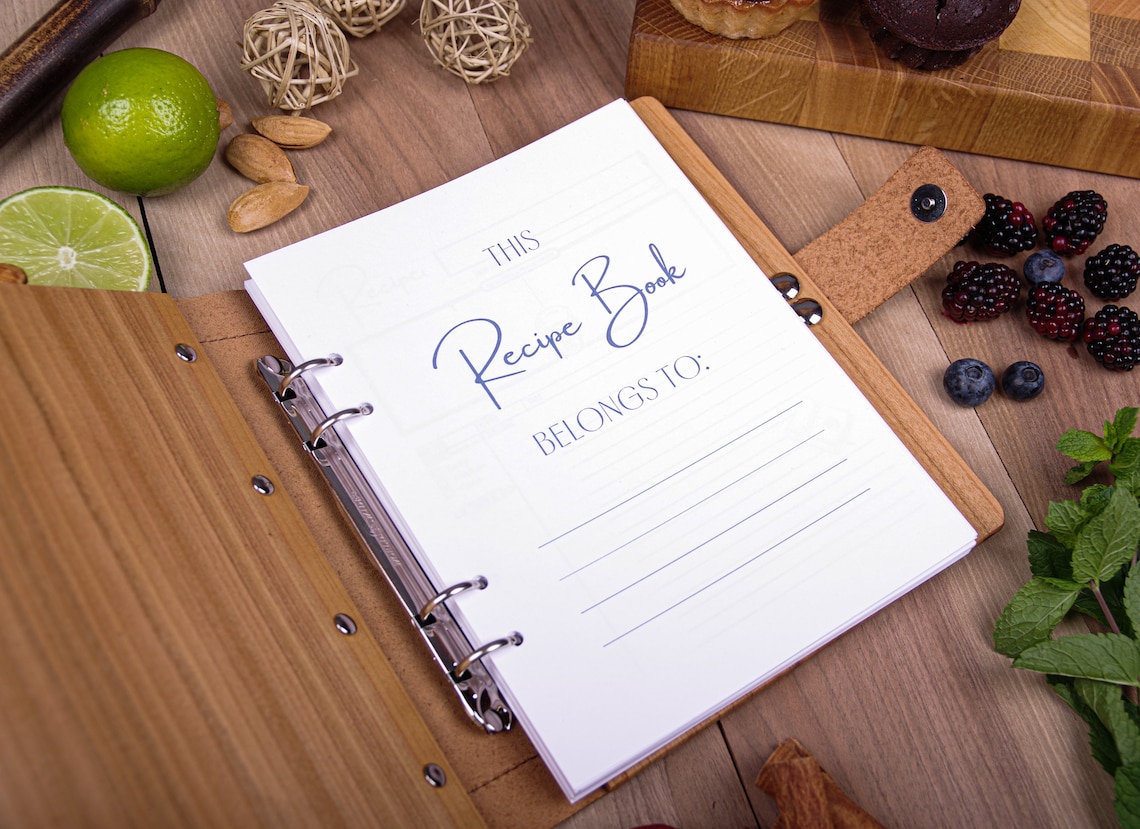 THIS
Recipe Book
BELONGS TO: